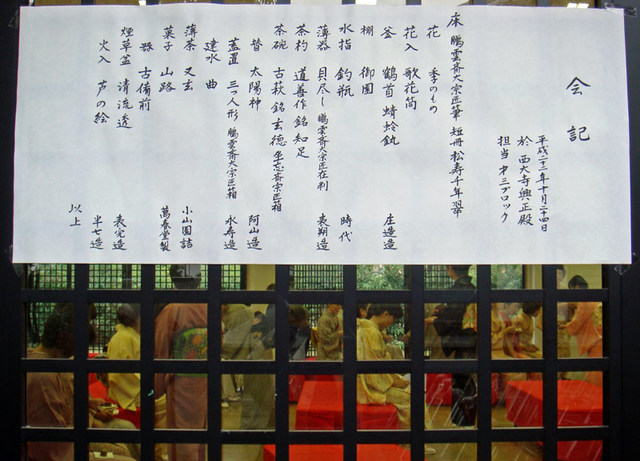 会記
平成二十二年十月二十四日
於 西大寺興正殿
担当 第三ブロック
床 鵬雲斎大宗匠筆 短冊 松寿千年翠
花 季のもの
花入 歌花筒
釜 鶴首 蜻蛉釻 庄造造
棚 御園
水指 釣瓶 時代
薄器 貝尽し 鵬雲斎大宗匠在判 表朔造
茶杓 道善作 銘 知足
茶碗 古萩 銘 玄徳 坐忘斎宗匠箱
替 太陽神 阿山造
蓋置 三つ人形 鵬雲斎大宗匠箱 永寿造
建水 曲
薄茶 又玄 小山園詰
菓子 山路 萬春堂製
器 古備前
煙草盆 清流透 表完造
火入 芦の絵 半七造
以上